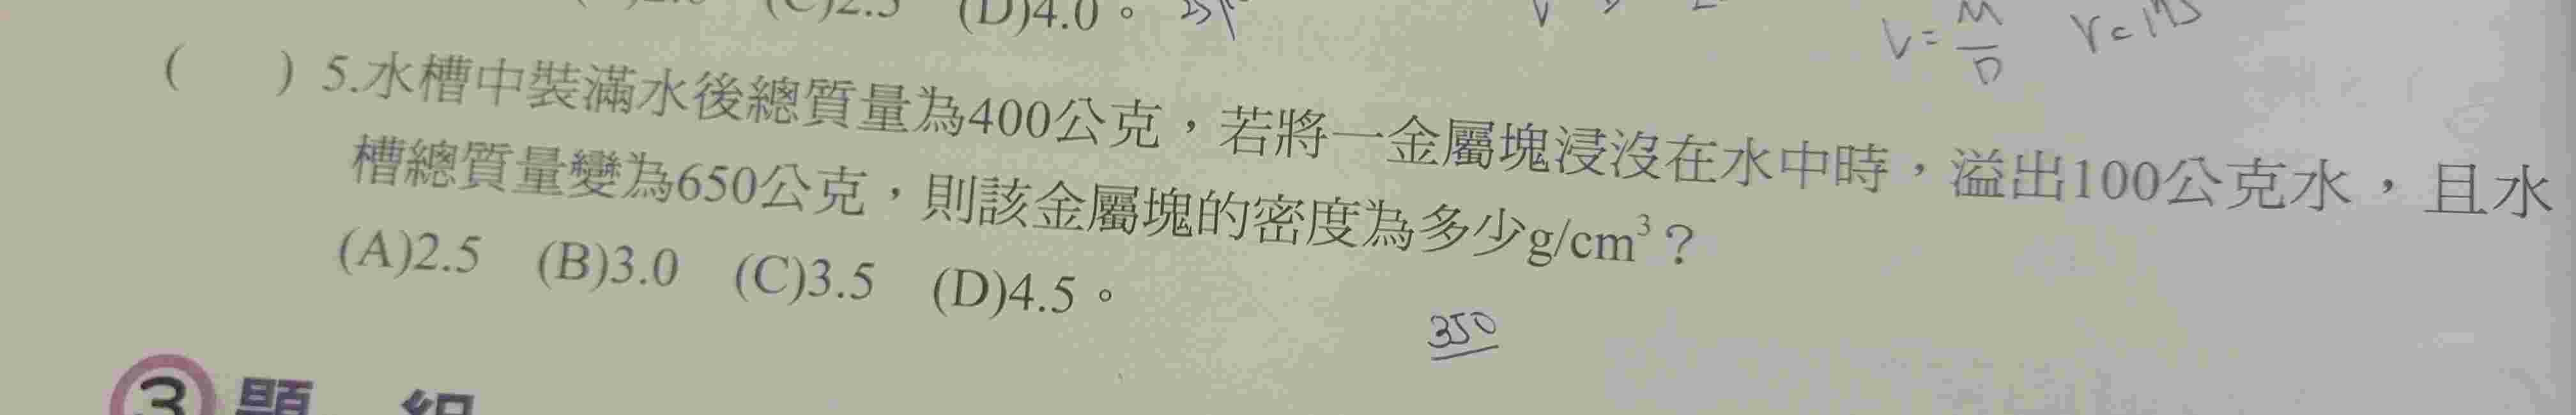 (C)2.5 (D)4.0。
V=M/D
(  ) 5.水槽中裝滿水後總質量為400公克，若將一金屬塊浸沒在水中時，溢出100公克水，且水
槽總質量變為650公克，則該金屬塊的密度為多少g/cm³？
(A)2.5 (B)3.0 (C)3.5 (D)4.5。
350
3 題 組